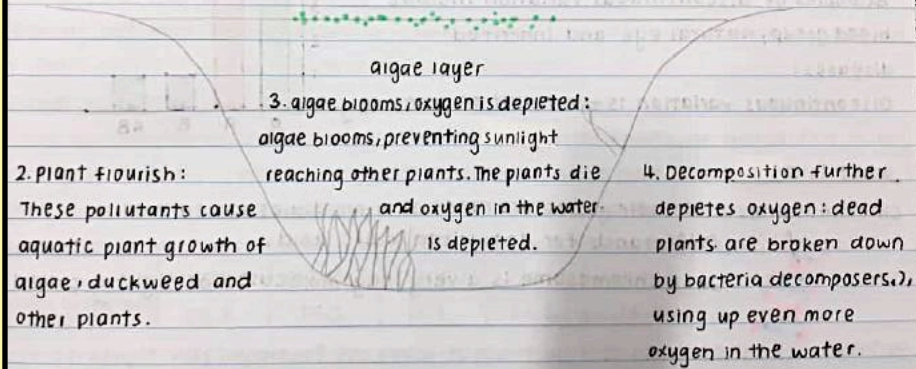 algae layer
3. algae blooms, oxygen is depleted:
algae blooms, preventing sunlight
reaching other plants. The plants die
and oxygen in the water.
is depleted.
2. Plant flourish:
These pollutants cause
aquatic plant growth of
algae, duckweed and
other plants.
4. Decomposition further
depletes oxygen: dead
plants are broken down
by bacteria decomposers.),
using up even more
oxygen in the water.